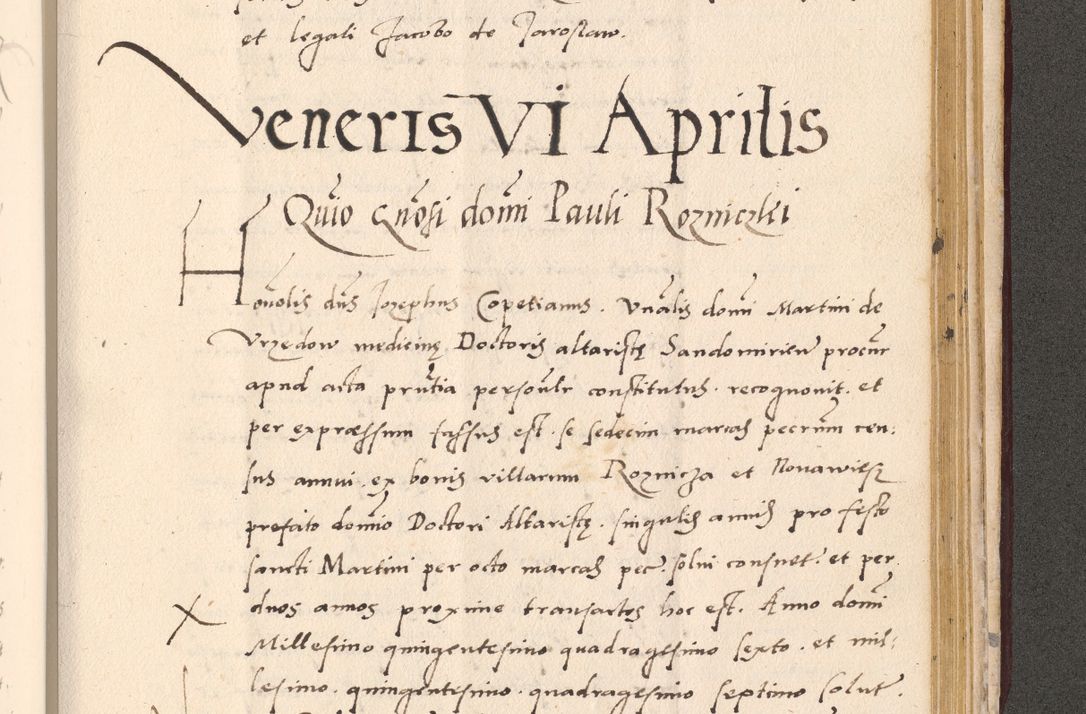 et legali Jacobo de Jaroslaw.
Veneris VI Aprilis
Quio gnosi domi Pauli Rozniczki
Honolis dns Josephus Copetianus. Vnalis domi Martini de
Vrzędow medicinę Doctoris altaristę Sandomirien procur
apud acta prutia personlr constitutus. recognouit. et
per expræssum fassus est. se sedecim marcas pecrum cen:
sus annui. ex bonis villarum Roznicza et Nouawiesz
prefato domio Doctori Altaristę. singulis annis pro festo
sancti Martini per octo marcas pec. solui consuet. et per
duos annos proxime transactos hoc est. Anno domi
Millesimo quingentesimo quadragesimo sexto. et mil:
lesimo. quingentesimo. quadragesimo septimo solut.